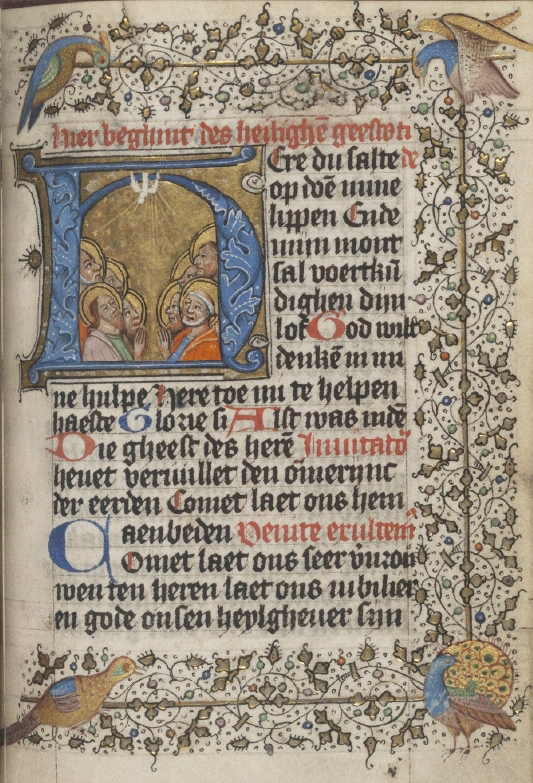 Hier beghint des heilighē geests ti
Ere du salte de
op doē mine
lippen Ende
mijn mont
sal voertkū
dighen dijn
lof God wilt
denkē in mi
ne hulpe Here toe mi te helpen
haeste Glorie si Alst was indē
Die gheest des herē Inuitatō
heuet veruullet den ōmerijnc
der eerden Comet laet ons hem
aenbeden Venite exultem
Comet laet ons seer vūrou
wen ten heren laet ons iubilier
en gode onsen heylgheuer sijn